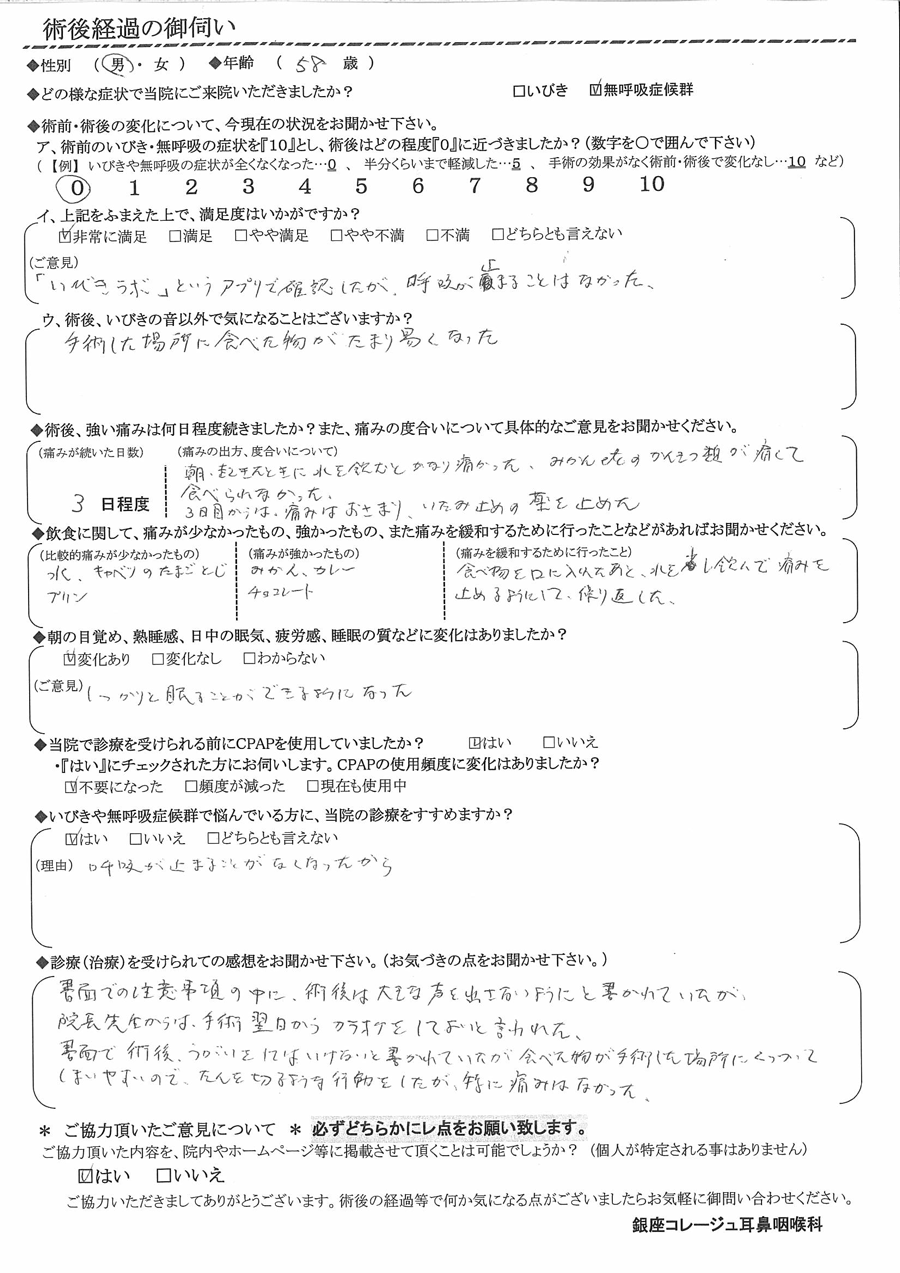 術後経過の御伺い
◆性別 （ 男 ・ 女 ） ◆年齢 （ 58 歳 ）
◆どの様な症状で当院にご来院いただきましたか？ □いびき ☑無呼吸症候群
◆術前・術後の変化について、今現在の状況をお聞かせ下さい。
ア、術前のいびき・無呼吸の症状を『10』とし、術後はどの程度『0』に近づきましたか？(数字を○で囲んで下さい)
(【例】いびきや無呼吸の症状が全くなくなった…0 、 半分くらいまで軽減した…5 、 手術の効果がなく術前・術後で変化なし…10 など)
0 1 2 3 4 5 6 7 8 9 10
イ、上記をふまえた上で、満足度はいかがですか？
☑非常に満足 □満足 □やや満足 □やや不満 □不満 □どちらとも言えない
(ご意見)
「いびきラボ」というアプリで確認したが、呼吸が止まることはなかった、
ウ、術後、いびきの音以外で気になることはございますか？
手術した場所に食べた物がたまり易くなった
◆術後、強い痛みは何日程度続きましたか？また、痛みの度合いについて具体的なご意見をお聞かせください。
(痛みが続いた日数) (痛みの出方、度合いについて)
朝、起きたときに水を飲むとかなり痛かった、みかんなどのかんきつ類が痛くて
食べられなかった、
3 日程度
3日目からは、痛みはおさまり、いたみ止めの薬を止めた
◆飲食に関して、痛みが少なかったもの、強かったもの、また痛みを緩和するために行ったことなどがあればお聞かせください。
(比較的痛みが少なかったもの) (痛みが強かったもの) (痛みを緩和するために行ったこと)
水、キャベツのたまごとじ みかん、カレー 食べ物を口に入れたあと、水を少し飲んで痛みを
プリン チョコレート 止めるようにして、繰り返した、
◆朝の目覚め、熟睡感、日中の眠気、疲労感、睡眠の質などに変化はありましたか？
☑変化あり □変化なし □わからない
(ご意見) しっかりと眠ることができるようになった
◆当院で診療を受けられる前にCPAPを使用していましたか？ ☑はい □いいえ
・『はい』にチェックされた方にお伺いします。CPAPの使用頻度に変化はありましたか？
☑不要になった □頻度が減った □現在も使用中
◆いびきや無呼吸症候群で悩んでいる方に、当院の診療をすすめますか？
☑はい □いいえ □どちらとも言えない
(理由) 呼吸が止まることがなくなったから
◆診療(治療)を受けられての感想をお聞かせ下さい。(お気づきの点をお聞かせ下さい。)
書面での注意事項の中に、術後は大きな声を出さないようにと書かれていたが、
院長先生からは、手術翌日からカラオケをしておいと言われた、
書面で術後、うがいをしてはいけないと書かれていたが食べた物が手術した場所にくっついて
しまいやすいので、たんを切るような行動をしたが、特に痛みはなかった、
＊ ご協力頂いたご意見について ＊ 必ずどちらかにレ点をお願い致します。
ご協力頂いた内容を、院内やホームページ等に掲載させて頂くことは可能でしょうか？ (個人が特定される事はありません)
☑はい □いいえ
ご協力いただきましてありがとうございます。術後の経過等で何か気になる点がございましたらお気軽に御問い合わせください。
銀座コレージュ耳鼻咽喉科